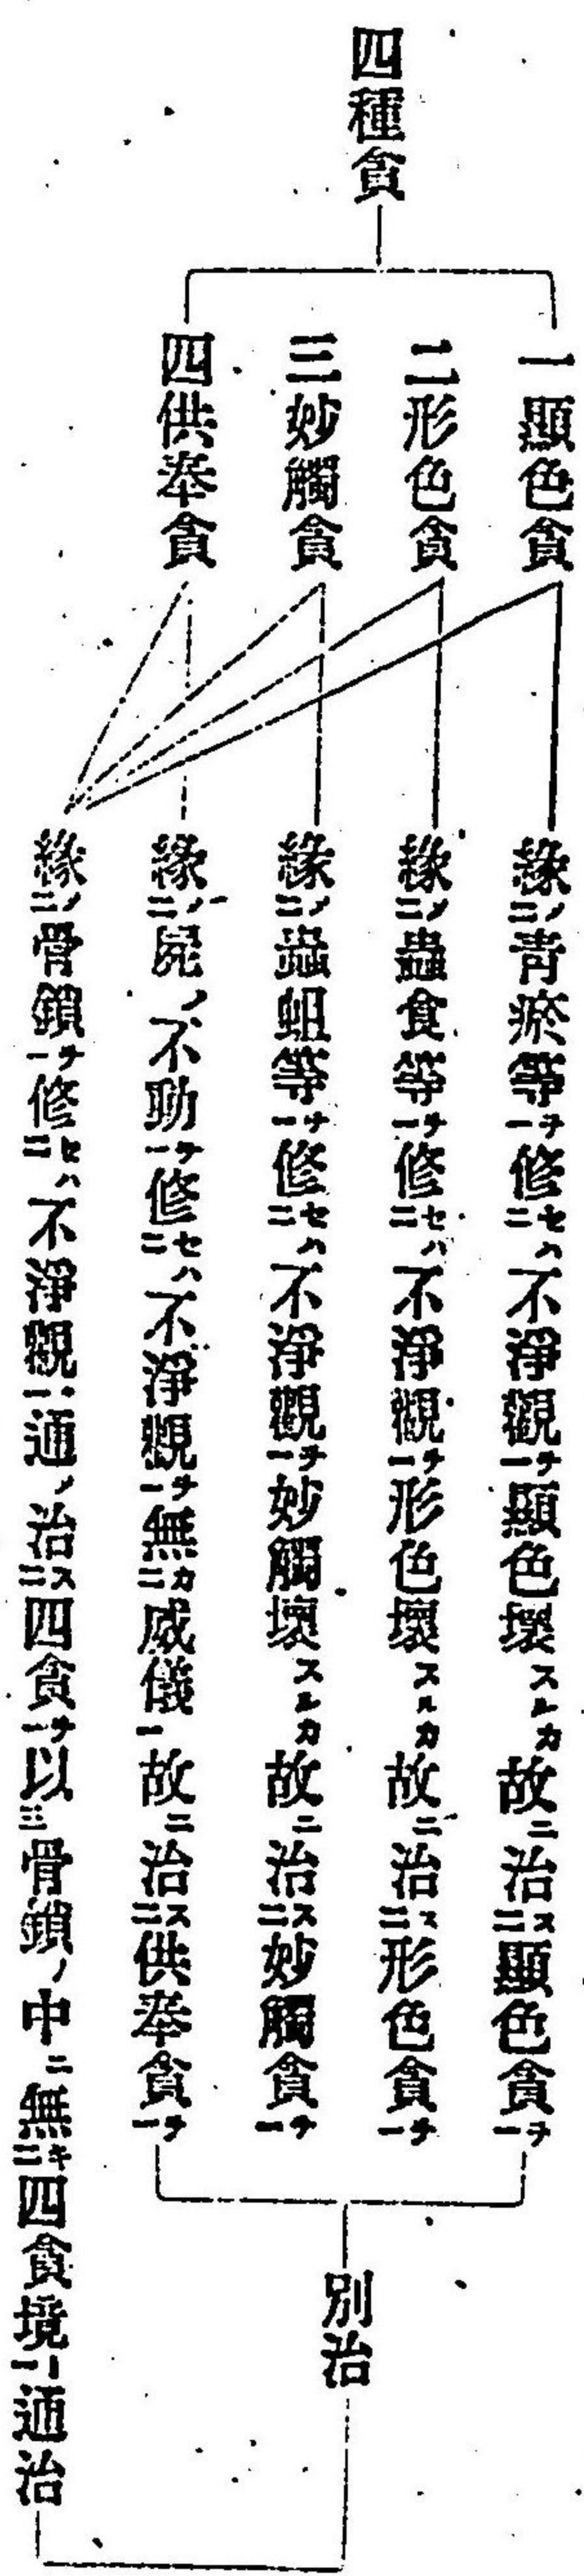 四種貪
一顯色貪
二形色貪
三妙觸貪
四供奉貪
緣ニノ青瘀等一ヲ修ニセハ不淨觀一ヲ顯色壞スルカ故ニ治ニス顯色貪一ヲ
緣ニノ蟲食等一ヲ修ニセハ不淨觀一ヲ形色壞スルカ故ニ治ニス形色貪一ヲ
緣ニノ蟲蛆等一ヲ修ニセハ不淨觀一ヲ妙觸壞スルカ故ニ治ニス妙觸貪一ヲ
緣ニノ屍ノ不動一ヲ修ニセハ不淨觀一ヲ無ニカ威儀一故ニ治ニス供奉貪一ヲ
緣ニノ骨鎖一ヲ修ニセハ不淨觀一通ノ治ニス四貪一ヲ以三骨鎖ノ中ニ無ニキ四貪境一通治
別治